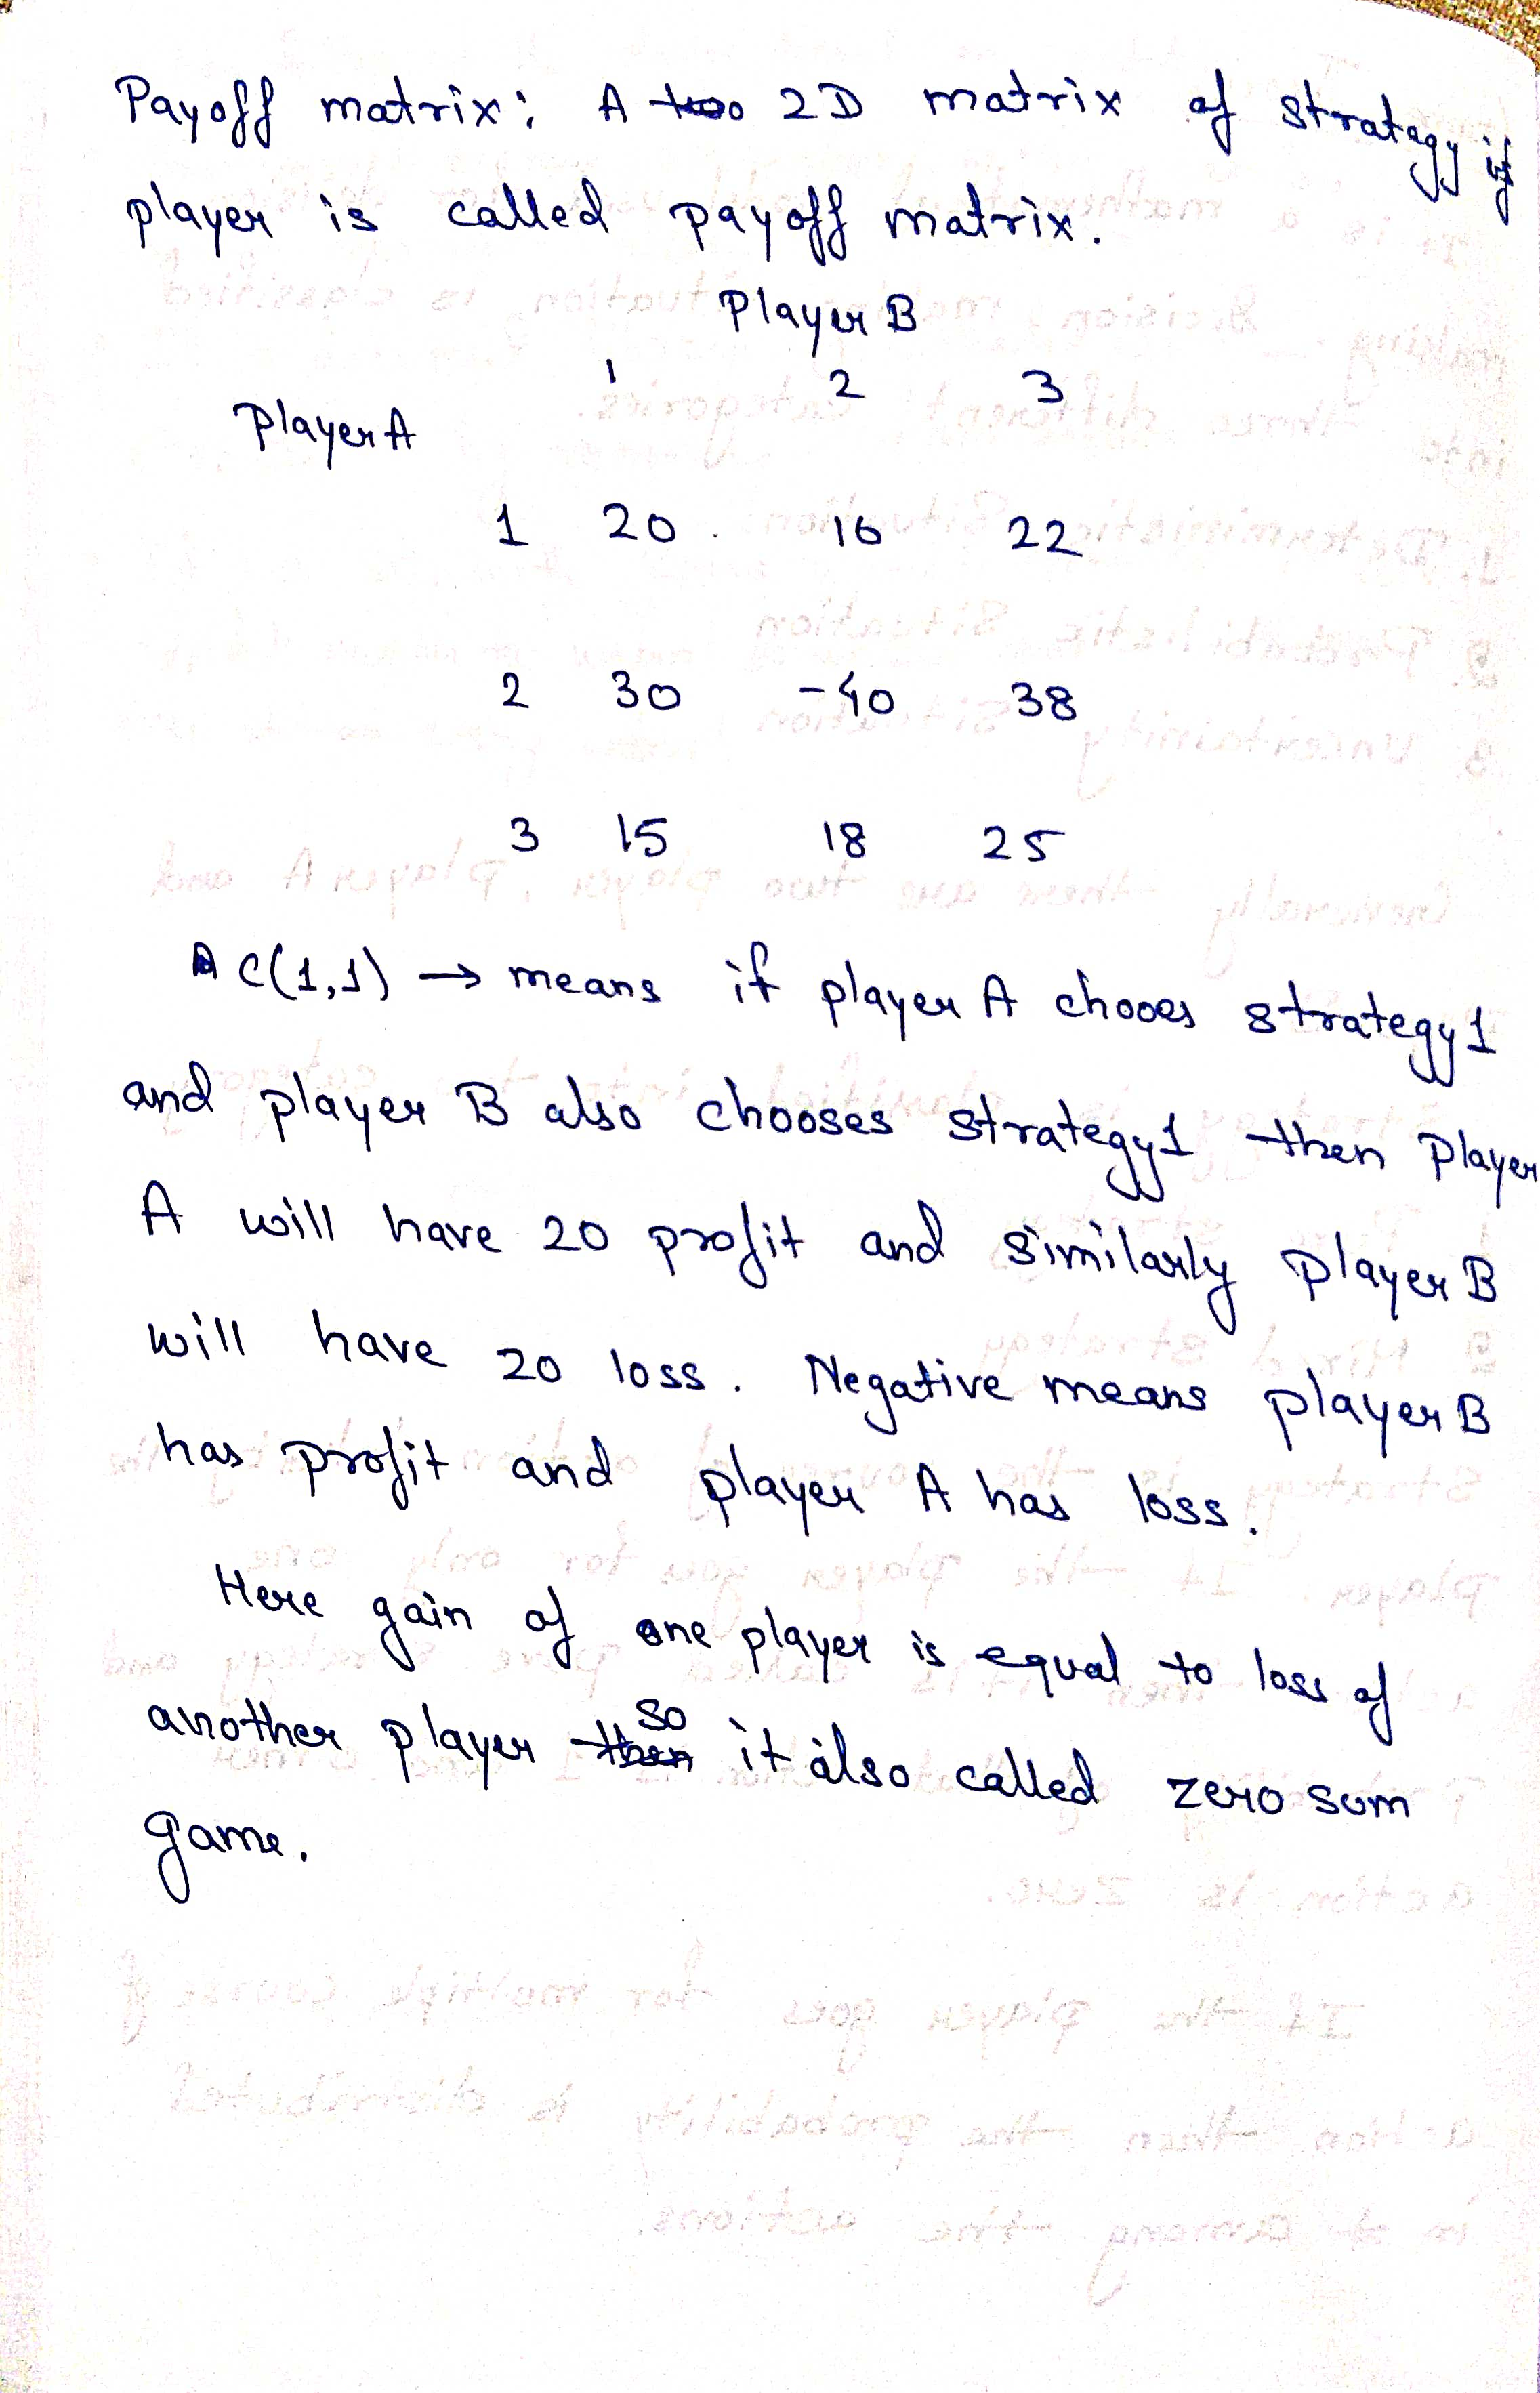 Payoff matrix: A 2D matrix of strategy of
player is called payoff matrix.
Player B
1 2 3
Player A
1 20 16 22
2 30 -40 38
3 15 18 25
C(1,1) → means if player A chooes strategy 1
and player B also chooses strategy 1 then Player
A will have 20 profit and similarly player B
will have 20 loss. Negative means player B
has profit and player A has loss.
Here gain of one player is equal to loss of
another player so it also called zero sum
game.